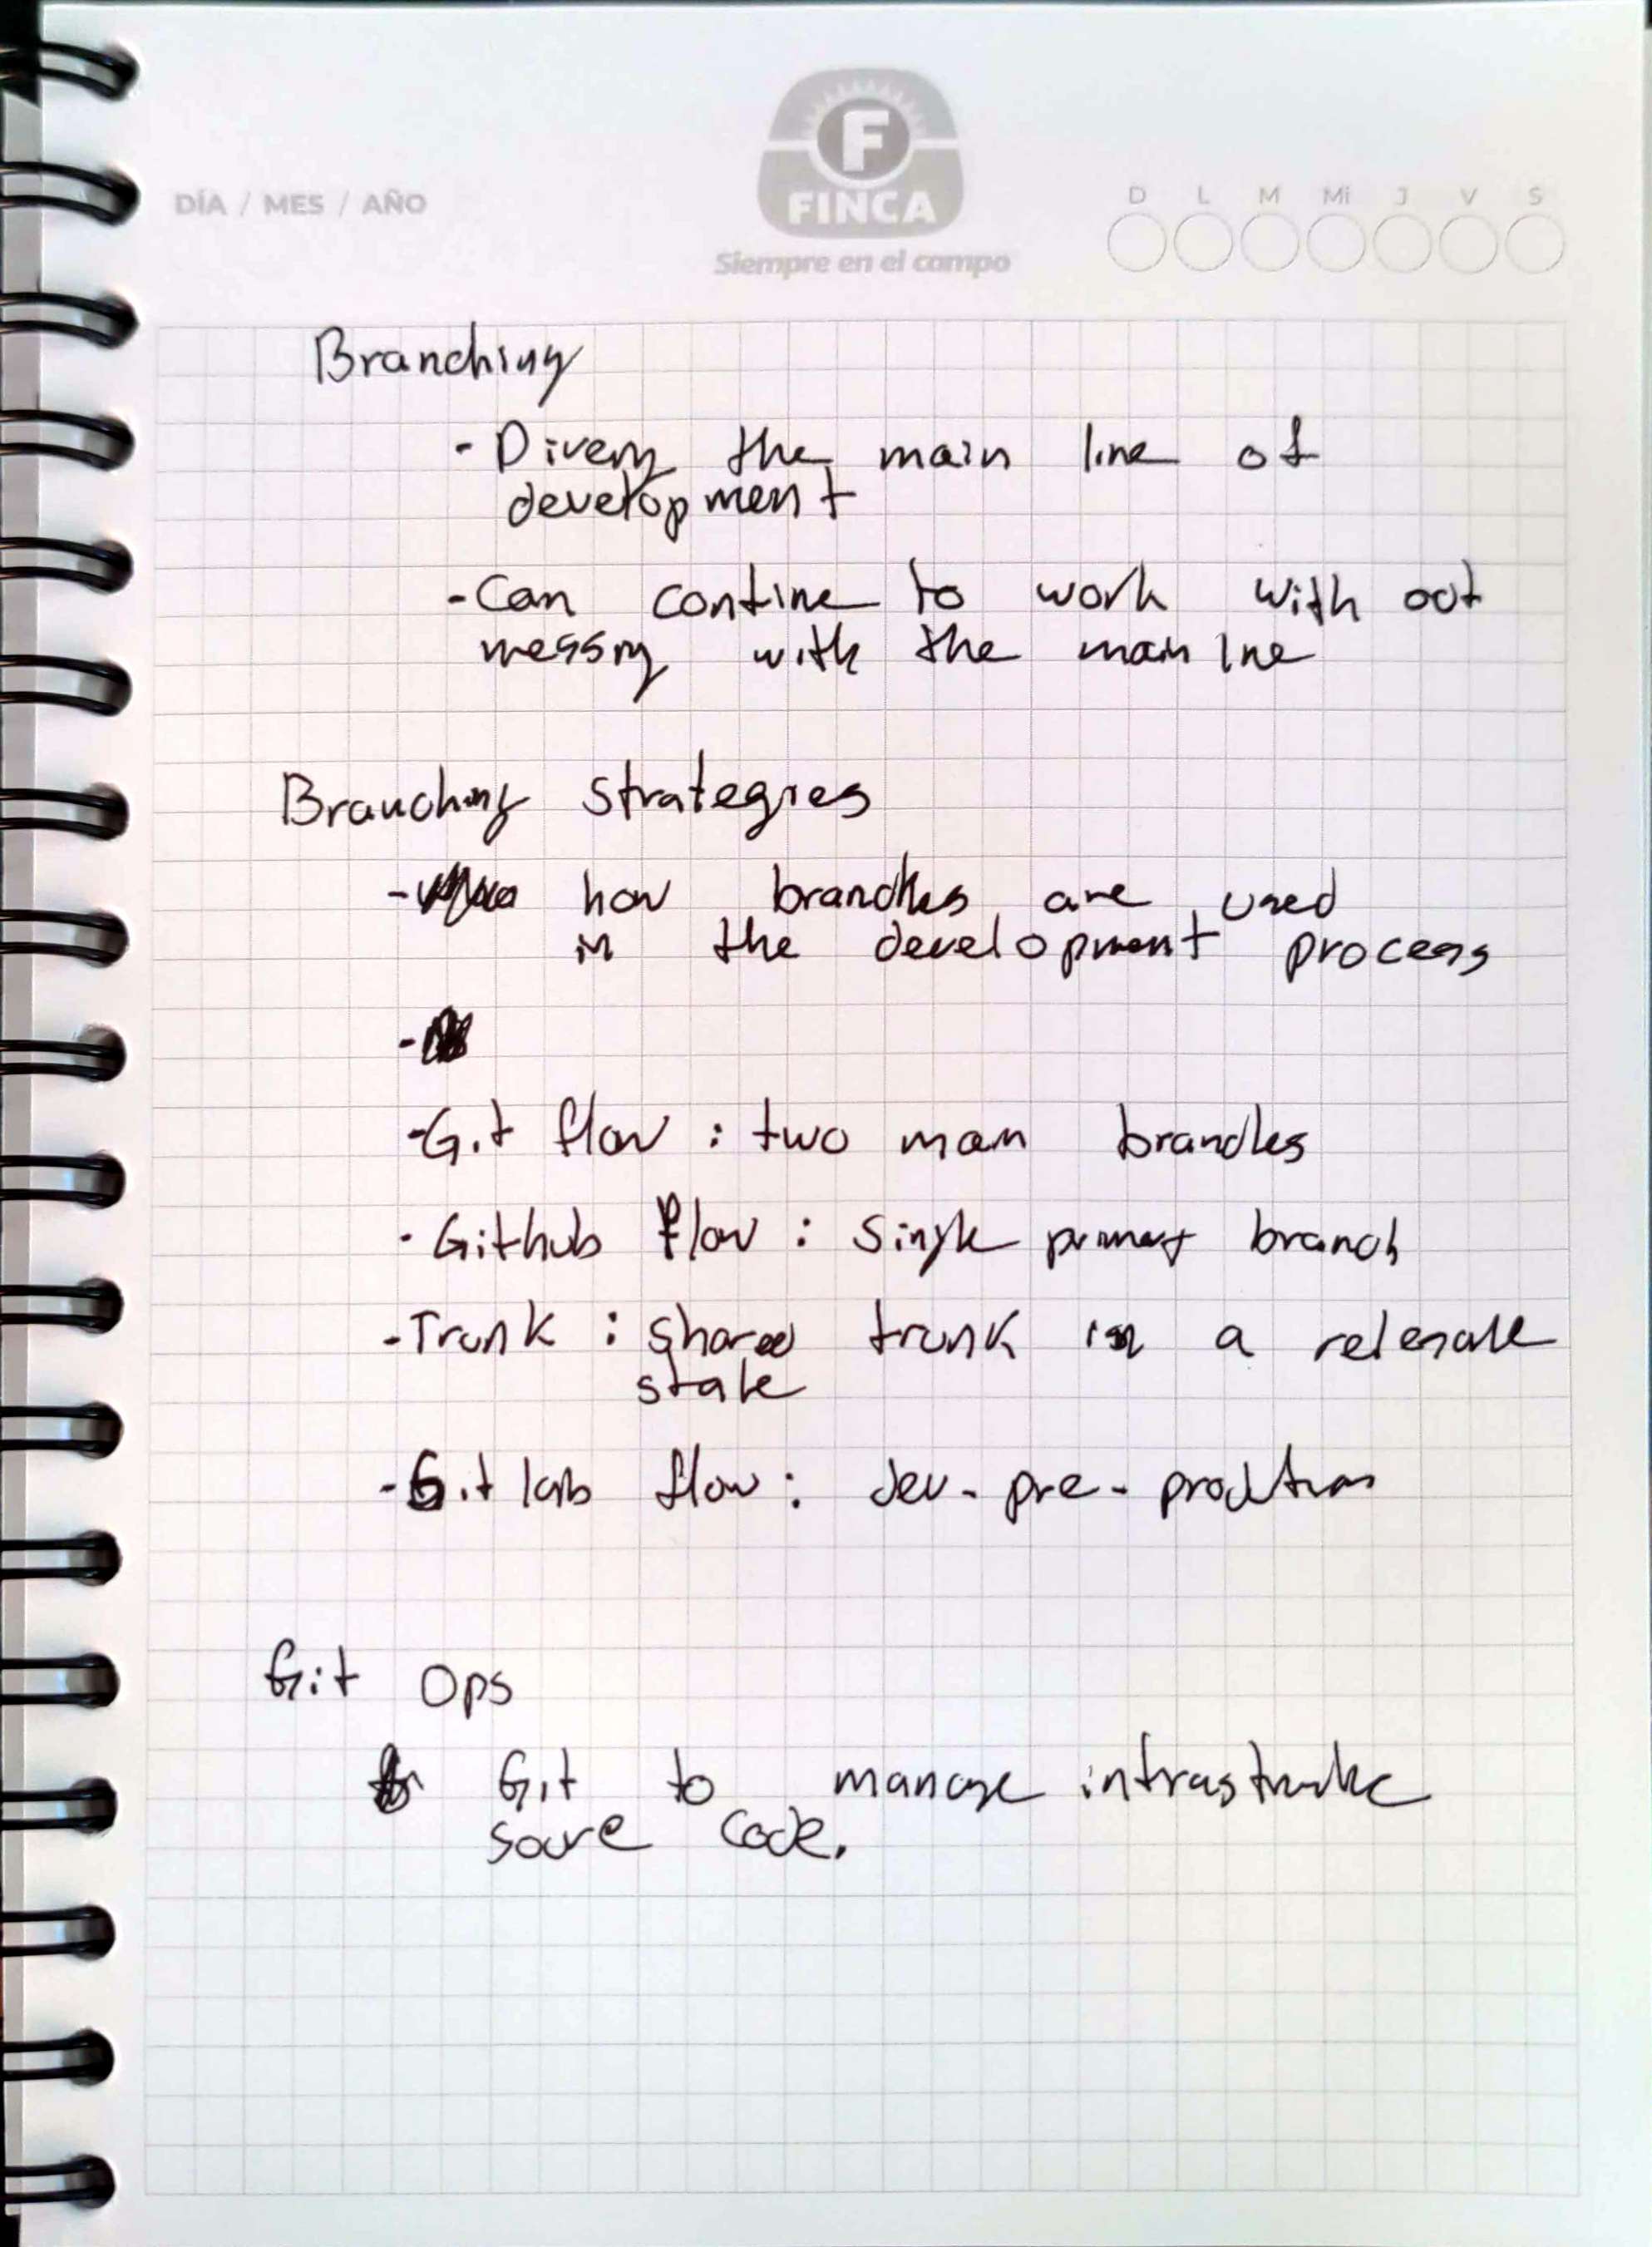 DÍA / MES / AÑO
F
FINCA
Siempre en el campo
D L M Mi J V S
Branching
- Diverg the main line of
development
- Can contine to work with out
messing with the main line
Branching strategies
- how branches are used
in the development process
-
- Git flow : two main branches
- Github flow : Single primary branch
- Trunk : shared trunk in a
state
- Git lab flow : dev - pre - production
Git Ops
Git to manage infrastructure
source code.